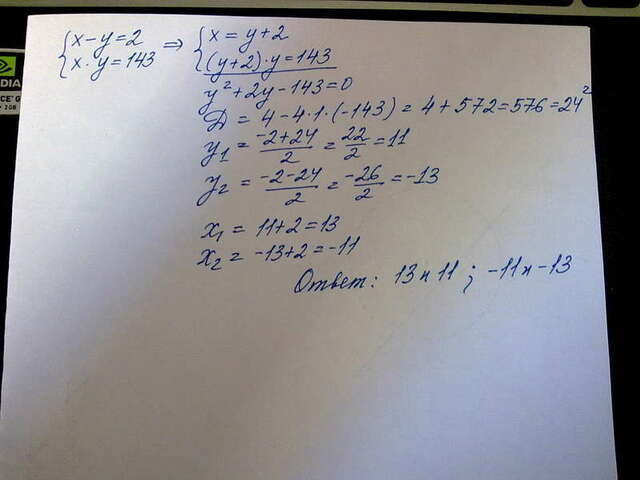 {x-y=2 => {x=y+2
{x·y=143 {(y+2)·y=143
y²+2y-143=0
D = 4-4·1·(-143) = 4+572=576=24²
y₁ = (-2+24)/2 = 22/2 = 11
y₂ = (-2-24)/2 = -26/2 = -13
x₁ = 11+2=13
x₂ = -13+2=-11
Ответ: 13 и 11 ; -11 и -13
DIA